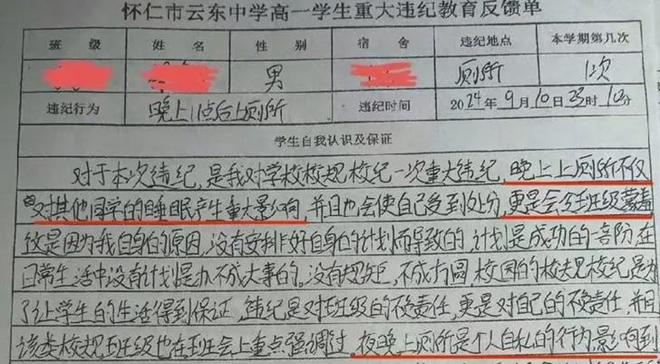 怀仁市云东中学高一学生重大违纪教育反馈单
班级 姓名 性别 男 宿舍 违纪地点 厕所 本学期第几次 1次
违纪行为 晚上11点后上厕所 违纪时间 2024年9月10日23时10分
学生自我认识及保证
对于本次违纪，是我对学校校规校纪一次重大违纪，晚上上厕所不仅
对其他同学的睡眠产生重大影响，并且也会使自己受到处分，更是会给班级蒙羞
这是因为我自身的原因，没有安排好自身的计划而导致的，计划是成功的一部阶，在
日常生活中没有计划是办不成大事的。没有规矩，不成方圆，校园的校规校纪是为
了让学生的生活得到保证，违纪是对班级的不负责任，更是对自己的不负责任，并且
该类校规班级也在班会上重点强调过，夜晚上厕所是个人自私的行为影响到